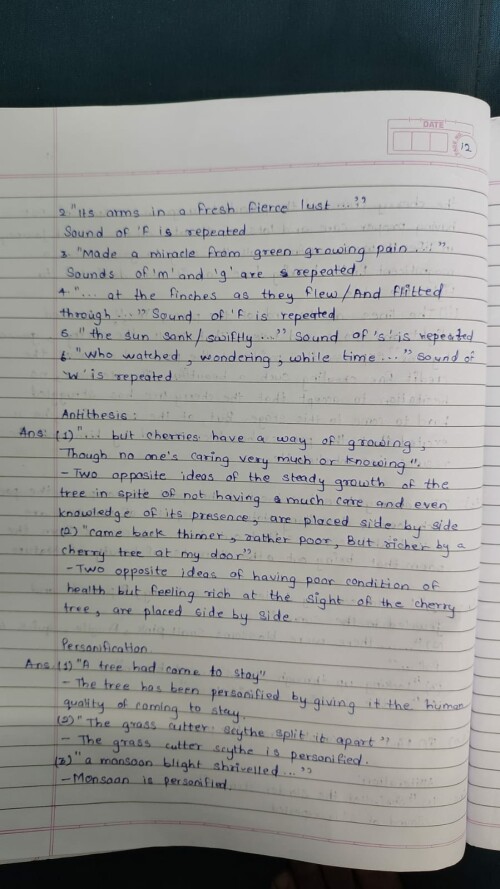 DATE
12
2. "Its arms in a fresh fierce lust ..."
Sound of 'f is repeated
3. "Made a miracle from green growing pain ..."
Sounds of 'm' and 'g' are repeated.
4. "... at the finches as they flew/And flitted
through ..." Sound of 'f' is repeated
5. "the sun sank/swiftly ..." Sound of 's' is repeated
6. "Who watched, wondering, while time ..." Sound of
'w' is repeated
Antithesis:
Ans: (1) "... but cherries have a way of growing,
Though no one's caring very much or knowing".
- Two opposite ideas of the steady growth of the
tree in spite of not having much care and even
knowledge of its presence, are placed side by side
(2) "came back thinner, rather poor, But richer by a
cherry tree at my door"
- Two opposite ideas of having poor condition of
health but feeling rich at the sight of the cherry
tree, are placed side by side.
Personification
Ans. (1) "A tree had come to stay"
- The tree has been personified by giving it the human
quality of coming to stay.
(2) "The grass cutter scythe split it apart"
- The grass cutter scythe is personified.
(3) "a monsoon blight shrivelled ..."
- Monsoon is personified.